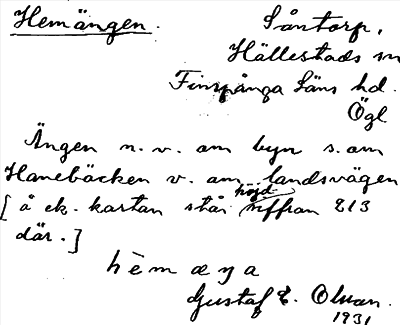 Hemängen.
Såntorp,
Hällestads sn
Finspånga Läns hd.
Ögl.
Ängen n.v. om byn s. om
Hanebäcken v. om landsvägen
[å ek. kartan står höjdsiffran 213
där.]
hèmæŋa
Gustaf E. Olsson.
1931